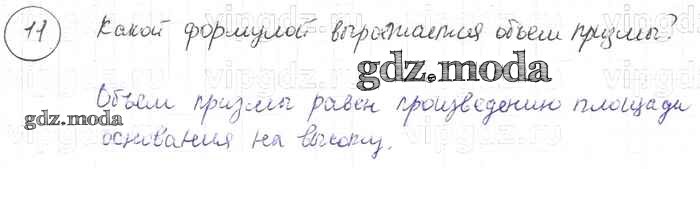 11 Какой формулой выражается объем призмы?
gdz.moda
Объем призмы равен произведению площади
gdz.moda
основания на высоту.